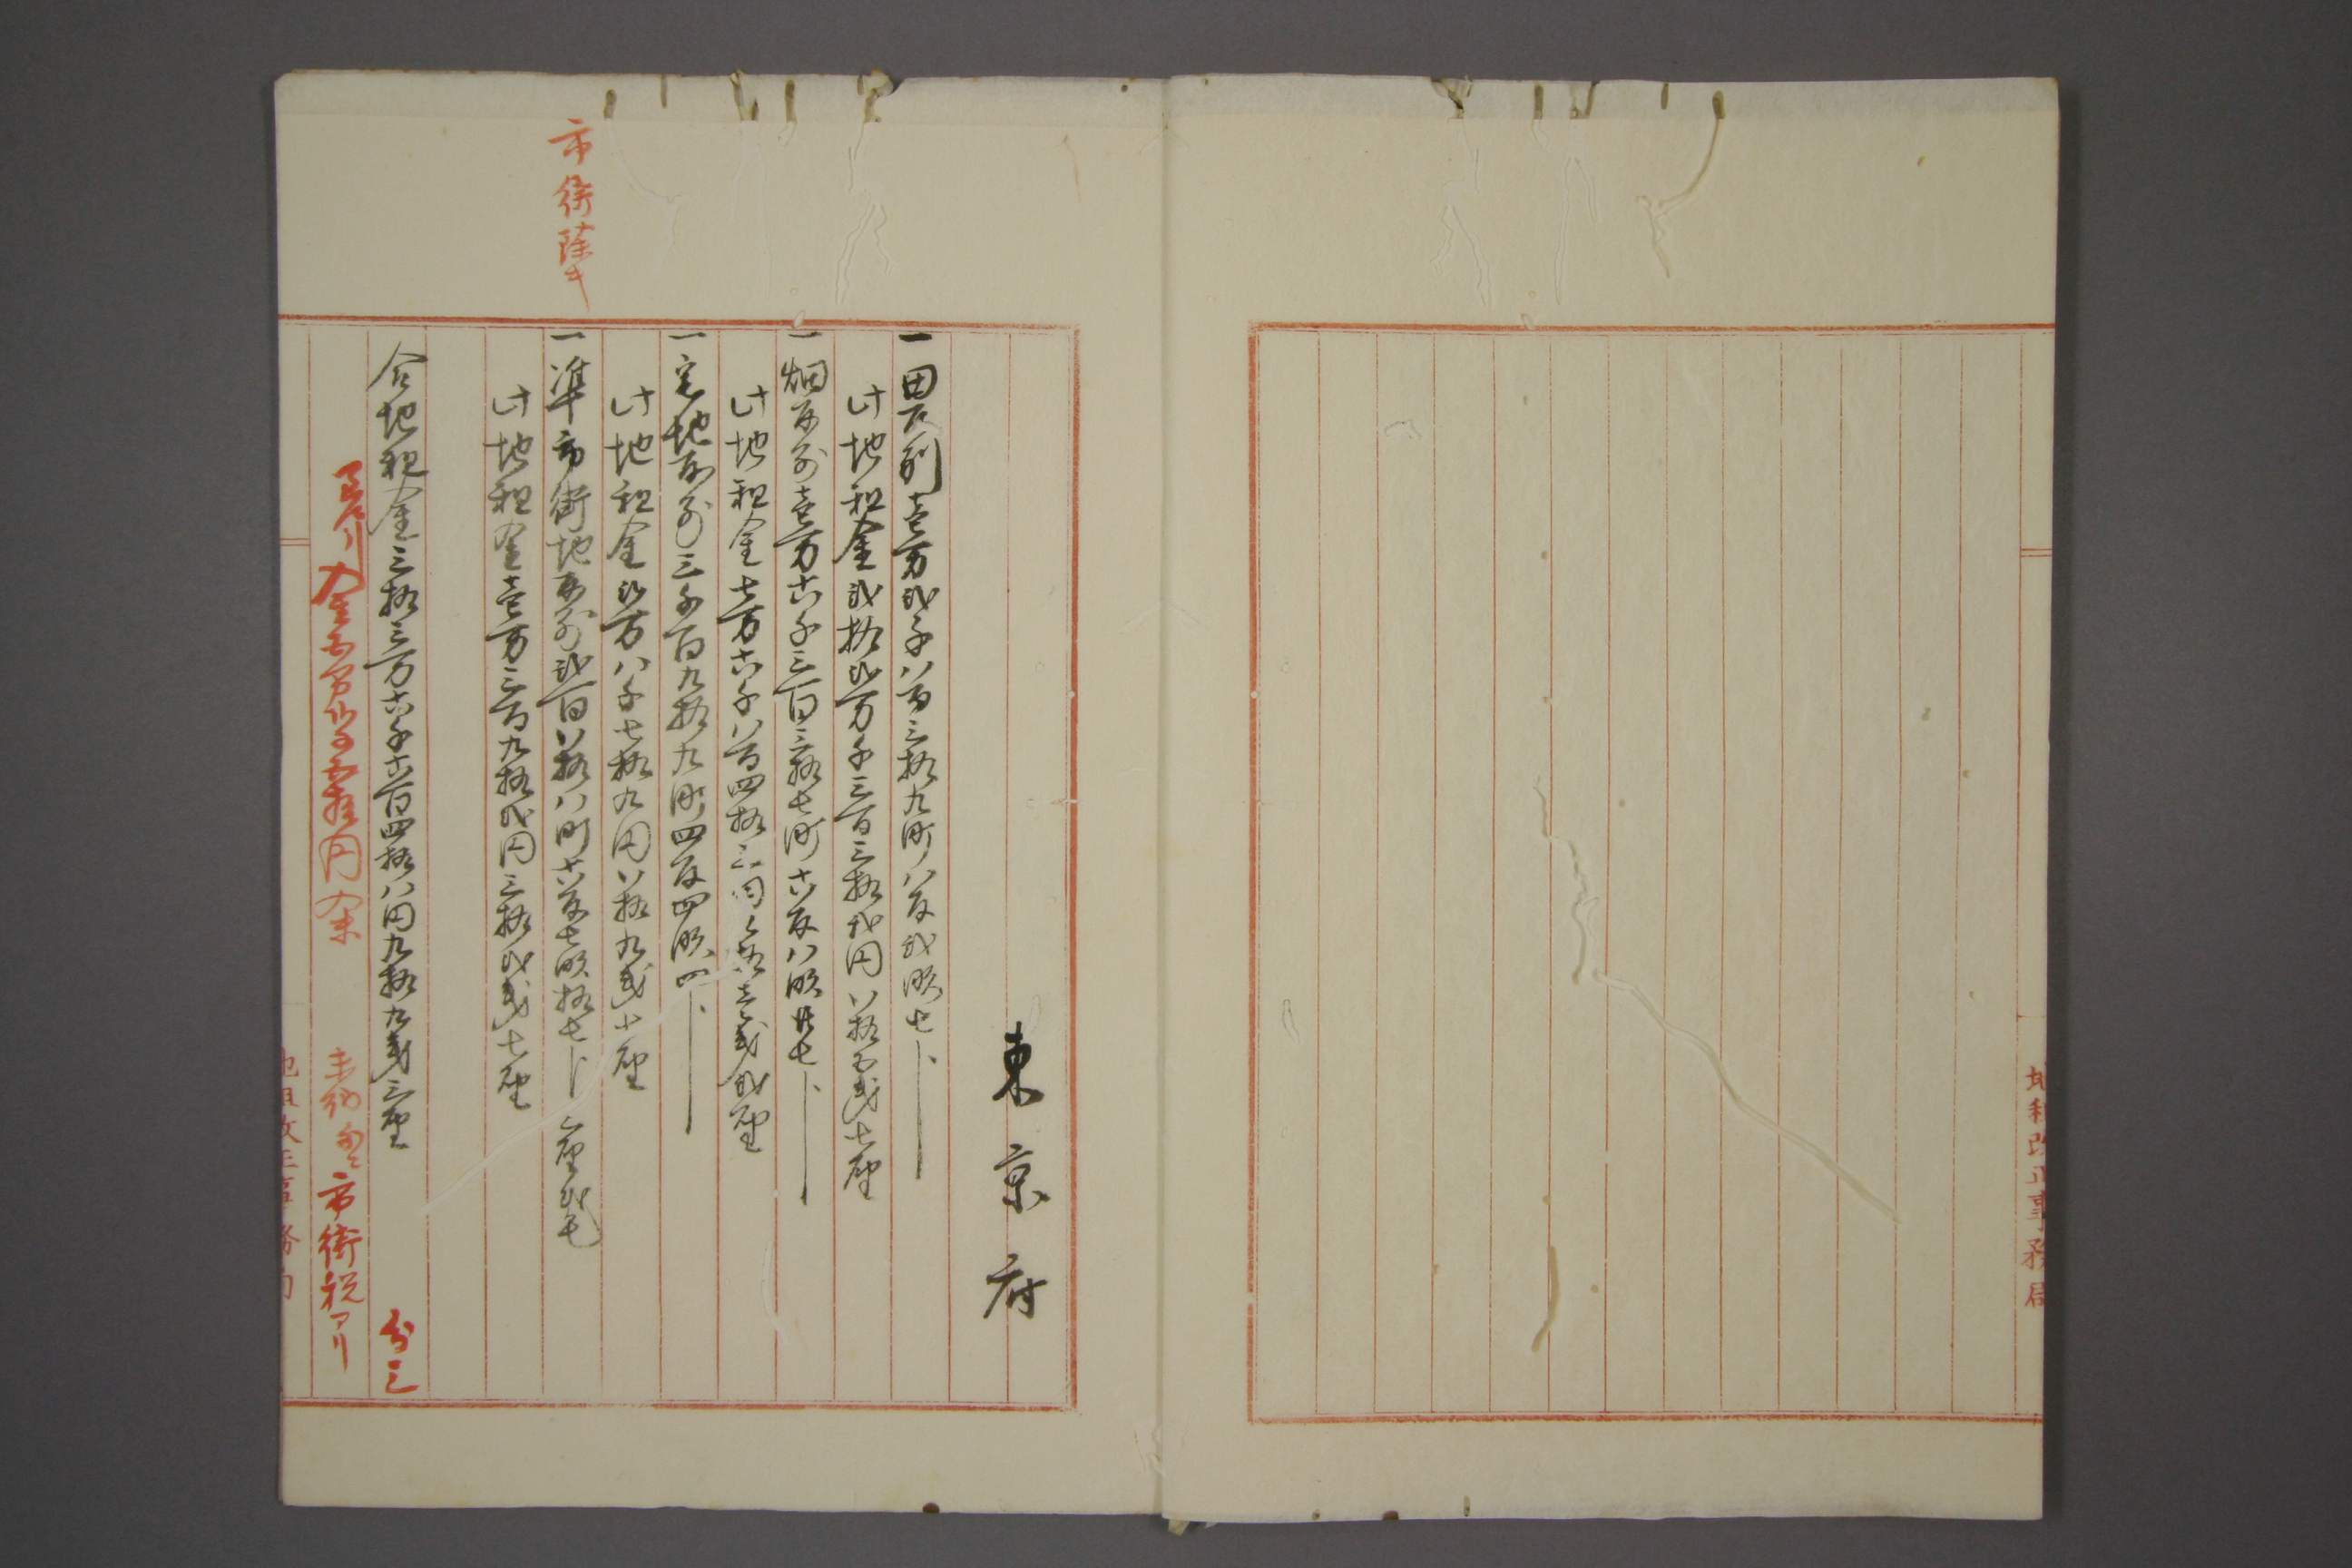 地租改正事務局
東京府
一田反別壱万弐千八百三拾九町八反弐畝七卜
此地租金弐拾弐万千三百三拾弐円八拾五銭七厘
一畑反別壱万六千三百三拾七町六反八畝廿七卜
此地租金七万六千八百四拾三円九拾壱銭弐厘
一宅地反別三千百九拾九町四反四畝四卜
此地租金弐万八千七拾九円八拾九銭七厘
市街除キ
一準市街地反別弐百八拾八町六反七畝拾七卜 厘弐毛
此地租金壱万三百九拾弐円三拾弐銭七厘
合地租金三拾三万六千六百四拾八円九拾九銭三厘
分三
円余 未納 市街税アリ
地租改正事務局